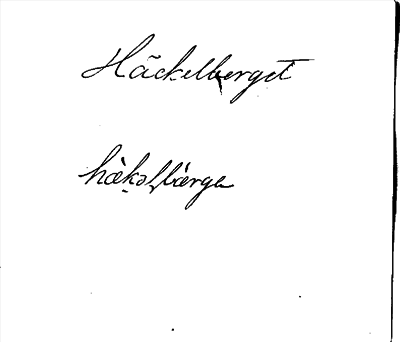 Häckelberget
hàkəlbærga